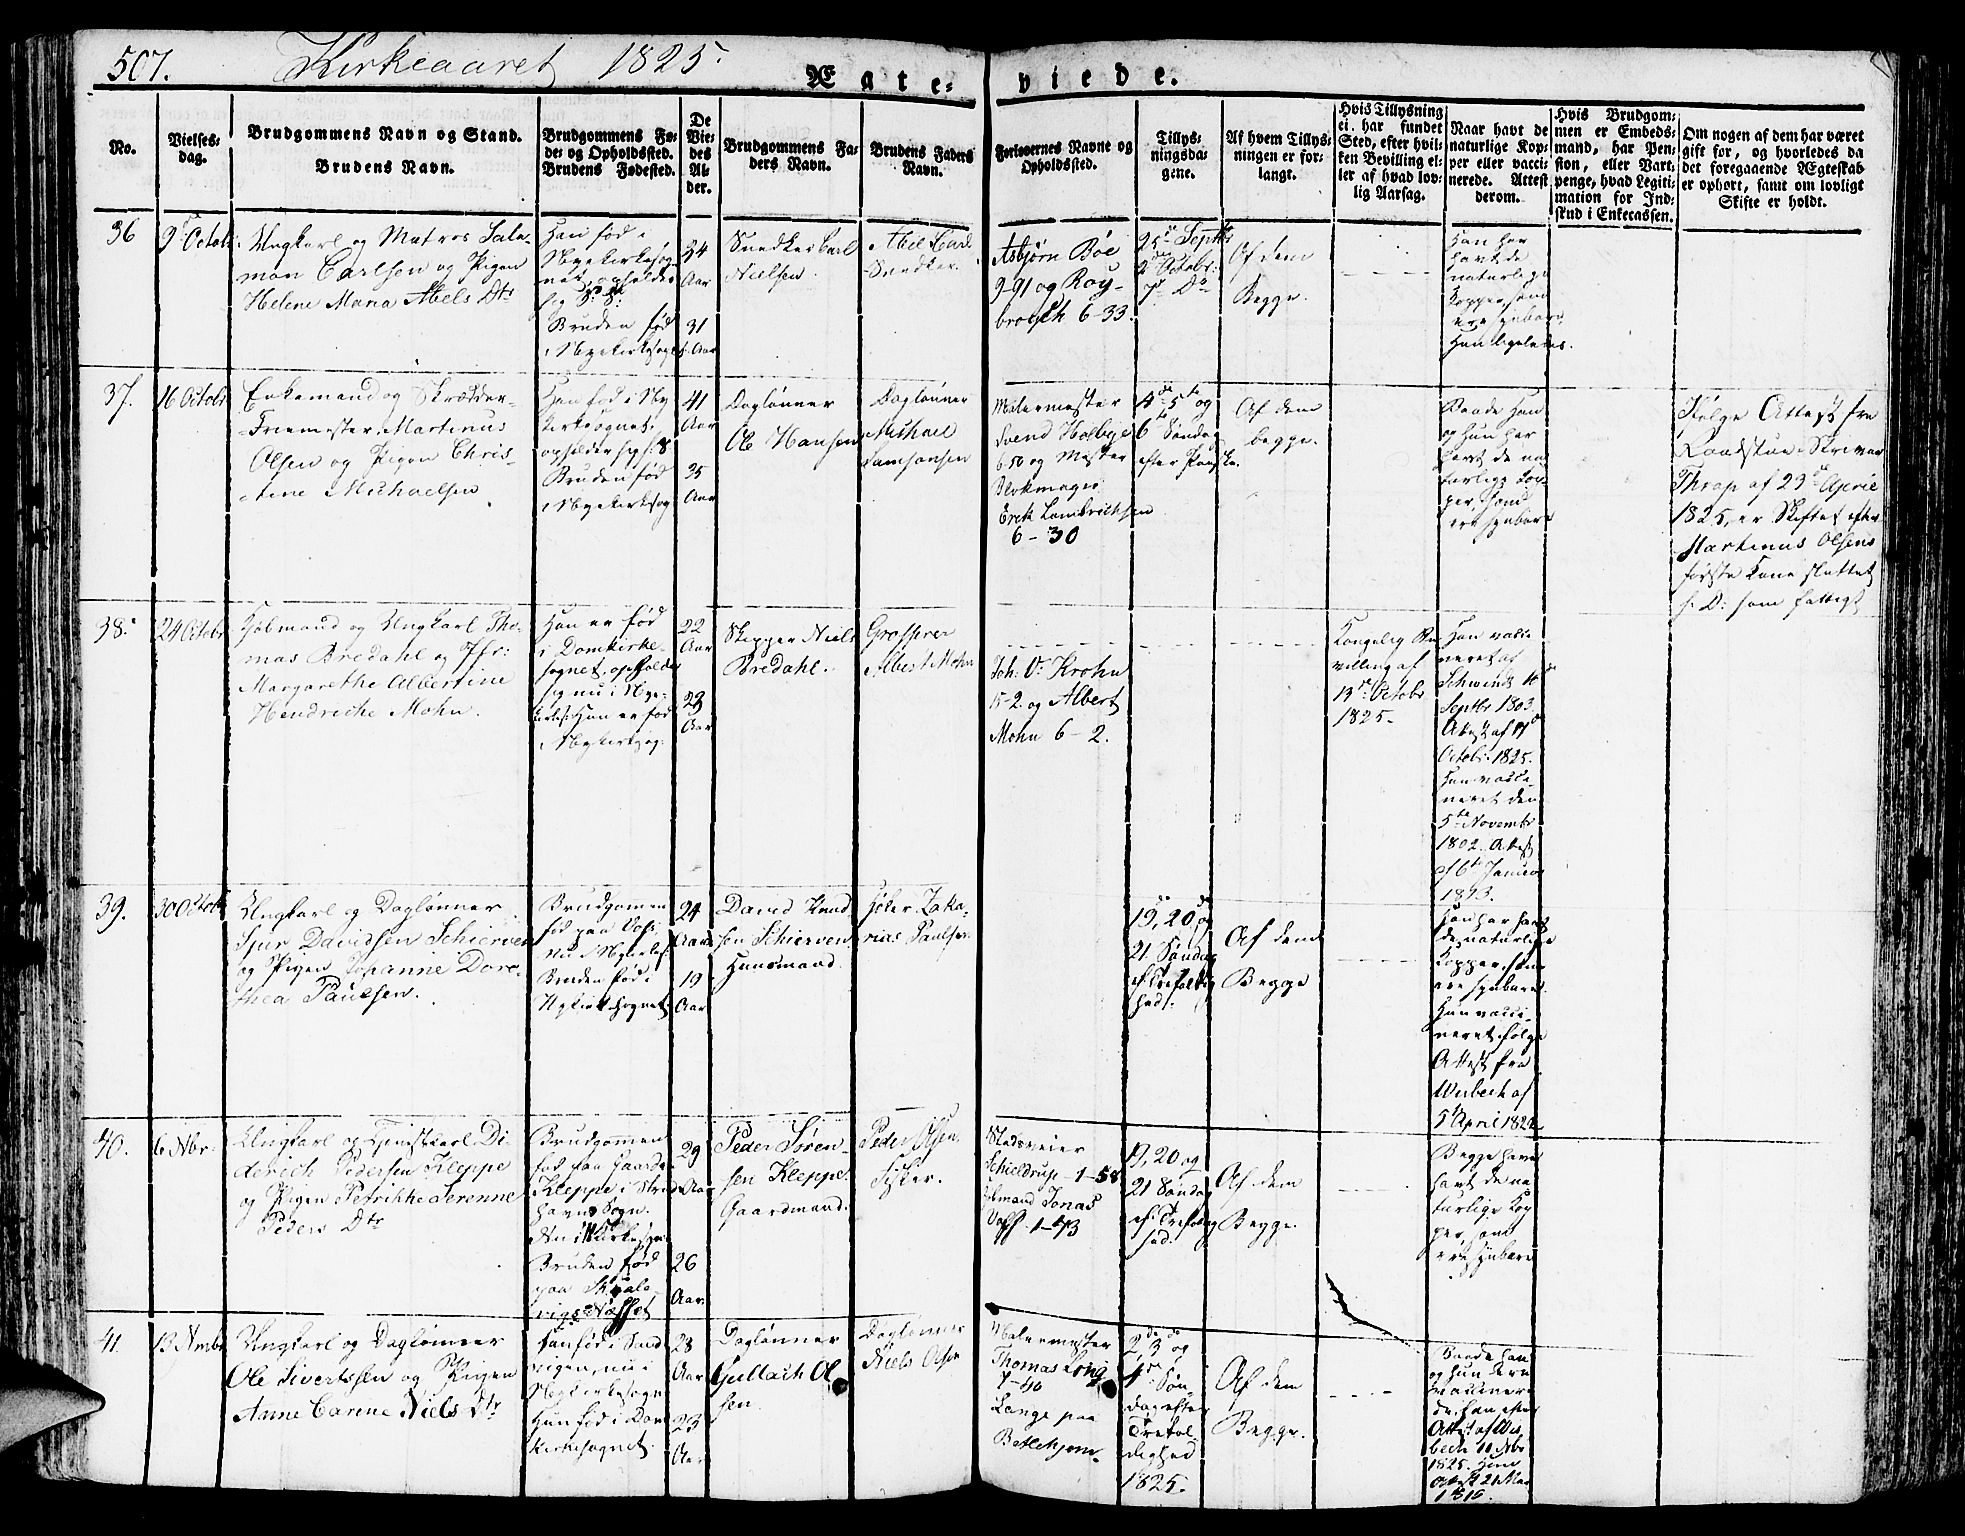 507.
Kirkeaaret 1825.
Ægte-
viede.
No.
Vielses-
dag.
Brudgommens Navn og Stand.
Brudens Navn.
Brudgommens Fø-
de- og Opholdssted.
Brudens Fødested.
De
Vie-
des
Al-
der.
Brudgommens Fa-
ders Navn.
Brudens Faders
Navn.
Forlovernes Navne og
Opholdssted.
Tillys-
ningsda-
gene.
Af hvem Tillys-
ningen er for-
langt.
Hvis Tillysning
ei har fundet
Sted, efter hvil-
ken Bevilling el-
ler af hvad lov-
lig Aarsag.
Naar havt de
naturlige Kop-
per eller vacci-
nerede. Attest
derom.
Hvis Brudgom-
men er Embeds-
mand, har Pen-
sion, eller Vart-
penge, hvad Legiti-
mation for Ind-
skud i Enkecassen.
Om nogen af dem har været
gift før, og hvorledes da
det foregaaende Ægteskab
er ophørt, samt om lovligt
Skifte er holdt.
36
9de Octobr
Ungkarl og Matros Salo-
mon Carlsen og Pigen
Helene Maria Abels Dtr
Han fød i
Nyekirkesog-
net, opholder
sig S: S:
Bruden fød
i Nyekirkesogn
34
Aar
31
Aar
Snedker Carl
Nielsen.
Abel Carl
Snedker.
Asbjørn Bøe
9-91 og Roy-
6-33.
25de Septbr
2den Octobr:
7de Do
Af dem
Begge.
Han har
havt de
naturlige
Kopper, som
ere synbare
Hun ligeledes.
37.
16 Octobr
Enkemand og Skrædder-
Friemester Martinus
Olsen og Pigen Chris-
tine Michaelsen
Han fød i Ny
kirkesognet,
opholder sig S: S
Bruden fød
i Nyekirkesog
41
Aar
35
Aar
Daglønner
Ole Hansen
Dagløner
Michael
Samsonsen
Malermester
Svend Holbye
6-50 og Mester
Blokmager
Erik Lambrichsen
6-30
4de 5te og
6te Søndag
efter Paaske.
Af dem
begge.
Baade Han
og Hun har
havt de na-
turlige Kop-
per, som
ere synbare
Følge Attest fra
Raadstue-Skriver
Thrap af 23de April
1825, er Skiftet efter
Martinus Olsens
første Kone sluttet
s. D: som fattigt
38.
24 Octobr
Kjøbmand og Ungkarl Tho-
mas Bredahl og Jfr:
Margarethe Albertine
Hendriche Mohn.
Han er fød
i Domkirke-
sognet, opholder
sig nu i Nye-
kirkes: Hun er fød
i Nykirkesog:
22
Aar
23
Aar
Skipper Niels
Bredahl.
Grosserer
Albert Mohn
Joh: V: Krohn
15-2. og Albert
Mohn 6-2.
Kongelig Be
villing af
13de Octobr
1825.
Han vacci
neret af
Schwindt
Septbr 1803.
Attest af
Octobr. 1825.
Hun vacci-
neret den
5te Novembr
1802. Attest
af 6te Januar
39.
30 Octobr
Ungkarl og Dagløner
Sjur Davidsen Schierven
og Pigen Johanne Doro-
thea Paulsen.
Brudgomen
fød paa Vos:
nu i Nykirkes:
Bruden fød i
Nykirkesognet
24
Aar
19
Aar
David Knud
sen Schierven
Huusmand.
Zaka-
rias Paulsen
19, 20 og
21 Søndag
ef: Trefoldig
hed.
Af dem
Begge
Han har havt
de naturlige
Kopper, som
ere synbare
Hun vacci-
neret følge
Attest fra
Wisbech af
5 April 1822
40.
6 Nbr.
Ungkarl og Tjenistkarl Di-
derich Pedersen Kleppe
og Pigen Petrikke Serenne
Peders Dtr
Brudgomen
fød paa Gaarden
Kleppe i Strud
havns Sogn.
Nu i N Kirkesogn
Bruden fød
paa Kvale-
vigs Næsset
29
Aar
26
Aar
Peder Søren-
sen Kleppe
Gaardmand.
Peder Olsen.
Fisker.
Stadsveier
Schieldrup 1-58
Jonas
Voss 1-43
19, 20 og
21 Søndag
ef: Trefoldig
hed.
Af dem
Begge.
Begge have
havt de na
turlige Kop
per, som
ere synbare
41.
13 Nmbr
Ungkarl og Dagløner
Ole Sivertssen og Pigen
Anne Carine Niels Dtr
Han fød i Sand
vigen, nu i
Nykirkesogn
Hun fød i Dom
kirkesognet.
28
Aar
23
Aar
Dagløner
Gullach Ol
sen.
Dagløner
Niels Olsen
Malermester
Thomas
7-40
Lange paa
Betlehjem.
2, 3 og
4de Søn-
dag efter
Trefol-
dighed
1825.
Af dem
Begge.
Baade han
og hun ere
vaccinere
de, han efter
Attest af Wis
bech 10 Nbr
1825. Hun
Attest 21 Mai
1815.